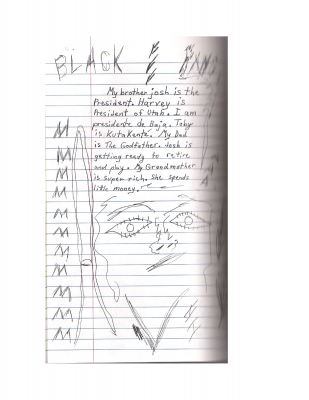 BLACK
My brother josh is the
President. Harvey is
President of Utah. I am
presidente de Baja. Toby
is KutaKante. My Dad
is The Godfather. Josh is
getting ready to retire
and play. My Grandmother
is super rich. She spends
little money.